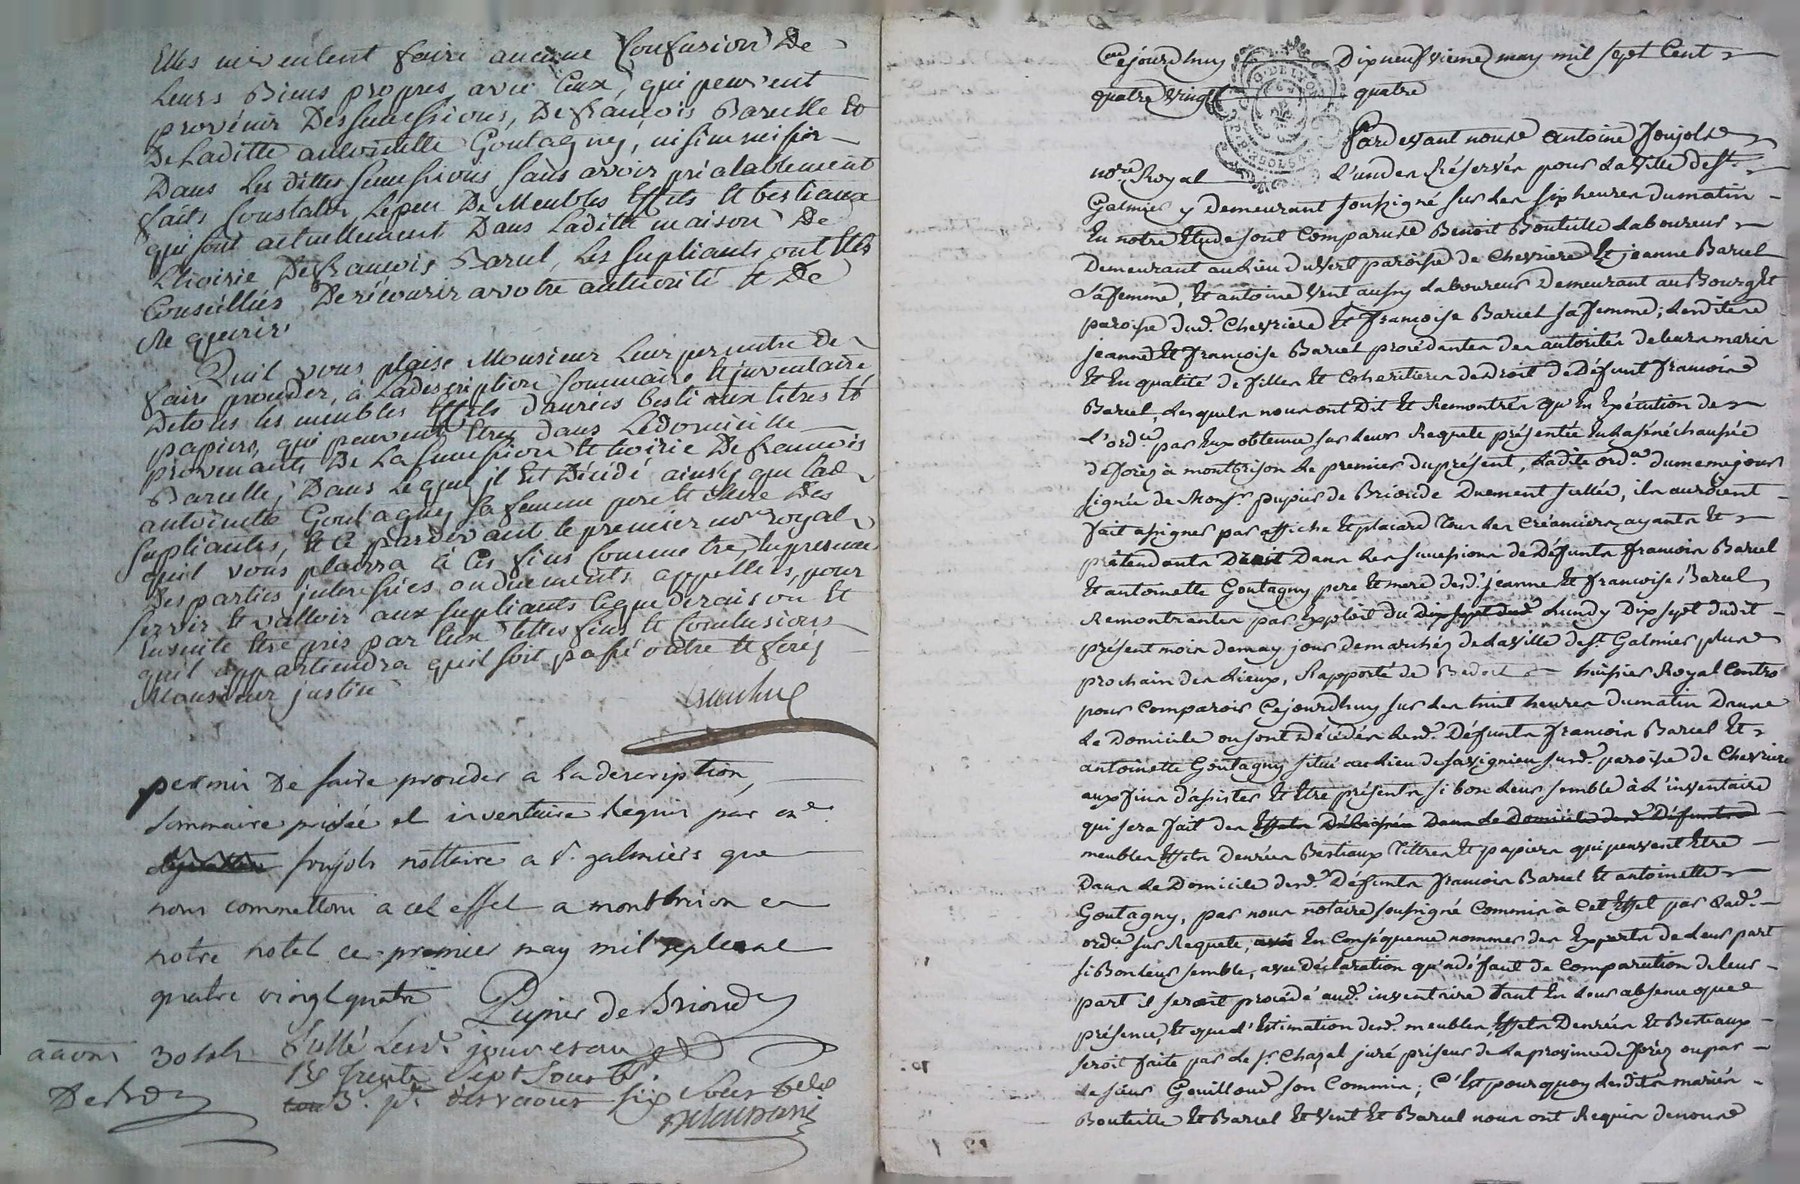 Elles ne veulent faire aucune Confusion De
Leurs Biens propres avec Ceux, qui peuvent
provenir Des successions, De françois Barelle Et
De Laditte antoinette Goutagny, ni simmisir
Dans Les dittes successions, sans avoir préalablement
faits Constater Le peu De Meubles Effets Et bestiaux
qui sont actuellement Dans Laditte maison De
Lhoirie De françois Barel, Les supliants ont Etés
Conseillés De récourir a votre authorité Et De
Requerir
Quil vous plaise Monsieur Leur permettre de
faire proceder, à La description sommaire Et inventaire
De tous les meubles Effets danrées bestiaux titres Et
papiers, qui peuvent Etre dans Le domicille
provenants De La succession Et hoirie De françois
Barelle, Dans Lequel il Est Décédé ainsy que lad.
antoinette Goutagny sa femme pere Et Mere Des
supliantes, Et ce pardevant le premier no.re royal
quil vous plaira à Ces fins Commettre, En presence
Des parties interessées ou duement appellées, pour
servir Et valloir aux supliants Ce que de raison Et
Ensuite Etre pris par Eux telles fins Et Conclusions
quil appartiendra quil soit passé outre Et ferés
Monsieur justice
permis De faire proceder a la description,
sommaire prisée et inventaire Requis par me.
foujols nottaire a St. galmiers que
nous commettons a cet effet a montbrison en
notre hotel ce premier may mil sept cent
quatre vingt quatre Pupier de Brioude
30 sols scellé Led. jour
trente sept sous
six sous
Cejourdhuy Dix neuf vieme may mil sept Cent
quatre vingt quatre
Pardevant nous antoine foujols
nore. Royal L'un des Réservés pour La Ville de St.
Galmier y Demeurant soussigné sur les six heures du matin
En notre Etude sont Comparus Benoit Bouteille Laboureur
Demeurant au Lieu du Vert paroisse de Chevriere Et jeanne Bariel
sa femme, Et antoine Vent aussy Laboureur Demeurant au Bourg Et
paroisse dud. Chevriere Et françoise Bariel sa femme; Lesdites
jeanne Et françoise Bariel procédantes des autorités de leurs maris
Et En qualité de filles Et Coheritieres de Droit de Défunt françois
Bariel, Lesquels nous ont Dit Et Remontrés qu'En Exécution de
L'ordce. par Eux obtenue sur leur Requete présentée En la sénéchaussée
de forez à montbrison Le premier du présent, Ladite ordce. du meme jour
signée de Monsr. pupier de Brioude Duement scellée, ils auroient
fait assigner par affiche Et placard tous les Créanciers ayants Et
prétendants Droit Dans les successions de Défunts françois Bariel
Et antoinette Goutagny pere Et mere desd. jeanne Et françoise Bariel
Remontrantes par Exploit du Dix sept dud. Lundy Dix sept dudit
présent mois de may jour de marchés de La ville de St. Galmier plus
prochain des Lieux, Rapporté de Bedoit huissier Royal Controlé
pour Comparoir Cejourdhuy sur les huit heures du matin Dans
Le Domicile ou sont Décédés lesd. Défunts françois Bariel Et
antoinette Goutagny situé au Lieu de savignieu susd. paroisse de Chevriere
aux fins d'assister Et Etre présents si bon leur semble à L'inventaire
qui sera fait des Effets Délaissés Dans Le Domicile desd. Défunts
meubles Effets Denrées Bestiaux Tittres Et papiers qui peuvent Etre
Dans Le Domicile desd. Défunts françois Bariel Et antoinette
Goutagny, par nous notaire soussigné Commis à Cet Effet par Lad.
ordce. sur Requete, avis En Conséquence nommer des Experts de Leur part
si Bon leur semble, avec déclaration qu'a défaut de Comparution de leur
part il seroit procédé aud. inventaire tant En leur absence que
présence, Et que L'Estimation desd. meubles, Effets Denrées Et Bestiaux
seroit faite par Le sr. Chazel juré priseur de La province de forez ou par
Le sieur Gouilloud son Commis; C'Est pourquoy Lesdits mariés
Bouteille Et Bariel Et Vent Et Bariel nous ont Requis de nous